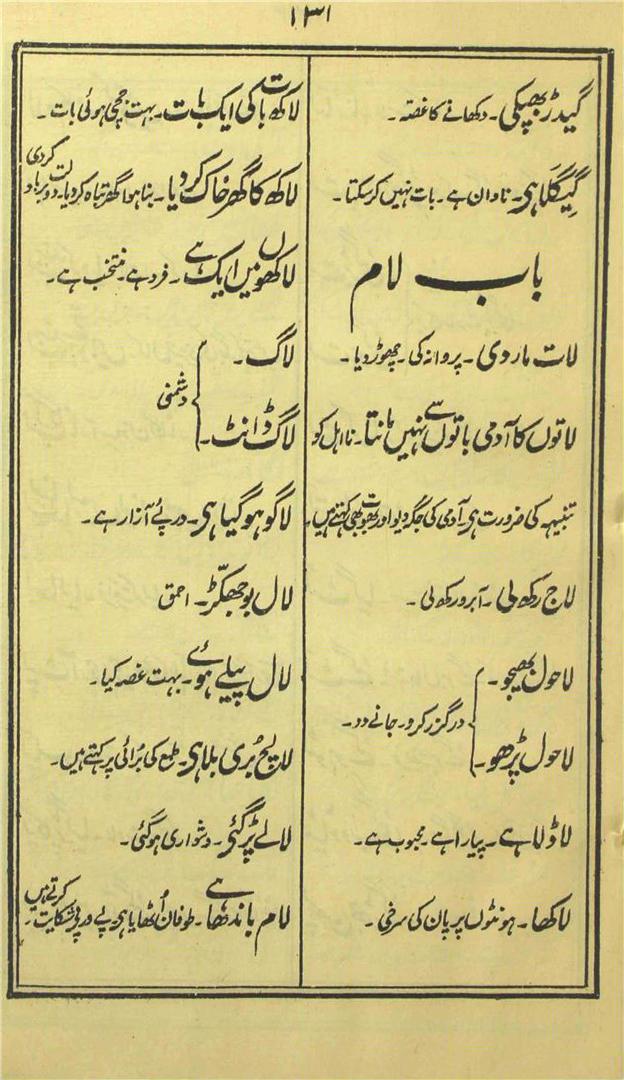 ۱۳۱
گیدڑ بھپکی۔ دکھانے کا غصہ۔
گیگلا ہی۔ نادان ہے۔ بات نہیں کرسکتا۔
باب لام
لات ماردی۔ پروانہ کی۔ چھوڑدیا۔
لاتوں کا آدمی باتوں سے نہیں مانتا۔ نااہل کو
تنبیہہ کی ضرورت ہی آدمی کی جگہ دیو اور بھوت بھی کہتے ہیں۔
لاج رکھ لی۔ آبرو رکھ لی۔
لاحول بھیجو۔
لاحول پڑھو۔
درگزر کرو۔ جانے دو۔
لاڈلا ہے۔ پیارا ہے۔ محبوب ہے۔
لاکھا۔ ہونٹوں پر پان کی سرخی۔
لاکھ بات کی ایک بات۔ بہت جچی ہوئی بات۔
لاکھ کا گھر خاک کردیا۔ بنا ہوا گھر تباہ کردیا۔ دولت برباد کردی
لاکھوں میں ایک ہے۔ فرد ہے۔ منتخب ہے۔
لاگ۔
لاگ ڈانٹ۔
دشمنی
لاگو ہوگیا ہی۔ درپئے آزار ہے۔
لال بوجھکّڑ۔ احمق
لال پیلے ہوئے۔ بہت غصہ کیا۔
لالچ بُری بلا ہی۔ طمع کی بُرائی پر کہتے ہیں۔
لالے پڑگئی۔ دشواری ہوگئی۔
لام باندھا ہے۔ طوفان اُٹھایا ہی پے در پی شکایت کرتے ہیں۔